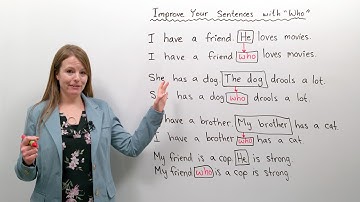 Improve Your Sentences with "Who"
I have a friend. He loves movies.
I have a friend who loves movies.
She has a dog. The dog drools a lot.
S has a dog who drools a lot.
have a brother. My brother has a cat.
I have a brother who has a cat.
My friend is a cop. He is strong.
My friend who is a cop is strong.